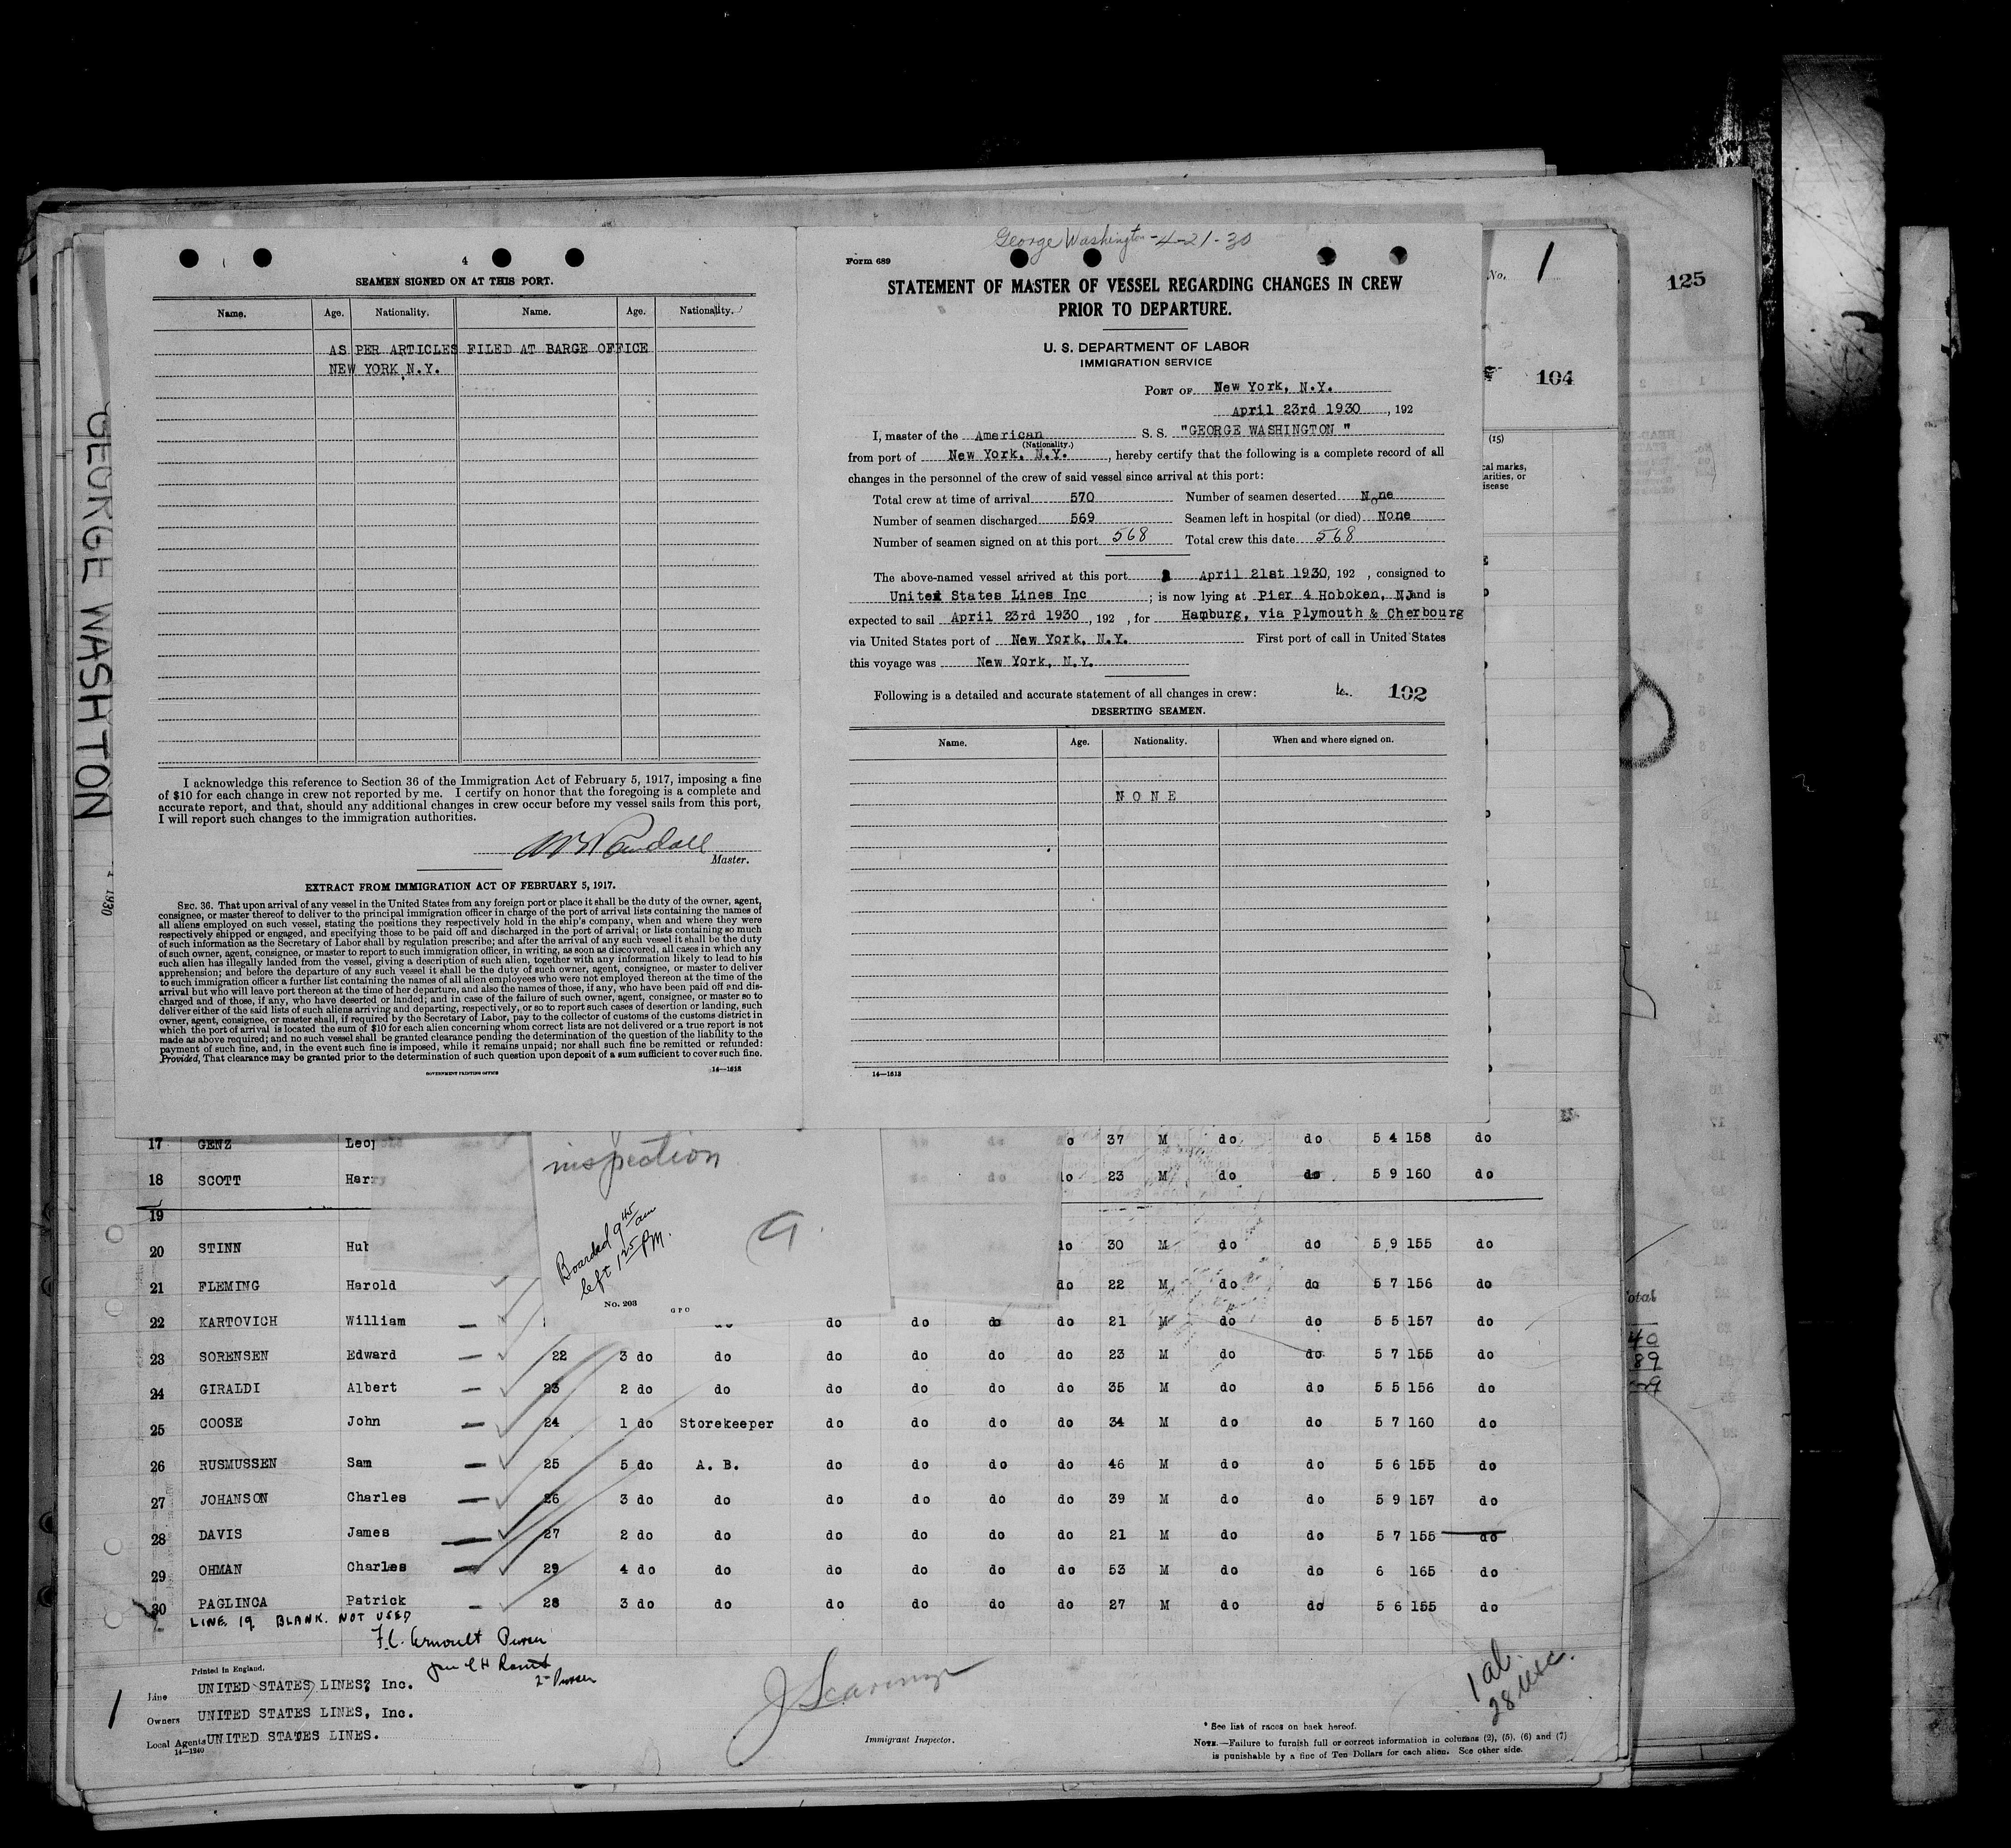 George Washington - 4-21-30
4
SEAMEN SIGNED ON AT THIS PORT.
Name. Age. Nationality. Name. Age. Nationality.
AS PER ARTICLES FILED AT BARGE OFFICE
NEW YORK, N.Y.
I acknowledge this reference to Section 36 of the Immigration Act of February 5, 1917, imposing a fine
of $10 for each change in crew not reported by me. I certify on honor that the foregoing is a complete and
accurate report, and that, should any additional changes in crew occur before my vessel sails from this port,
I will report such changes to the immigration authorities.
Master.
EXTRACT FROM IMMIGRATION ACT OF FEBRUARY 5, 1917.
SEC. 36. That upon arrival of any vessel in the United States from any foreign port or place it shall be the duty of the owner, agent,
consignee, or master thereof to deliver to the principal immigration officer in charge of the port of arrival lists containing the names of
all aliens employed on such vessel, stating the positions they respectively hold in the ship's company, when and where they were
respectively shipped or engaged, and specifying those to be paid off and discharged in the port of arrival; or lists containing so much
of such information as the Secretary of Labor shall by regulation prescribe; and after the arrival of any such vessel it shall be the duty
of such owner, agent, consignee, or master to report to such immigration officer, in writing, as soon as discovered, all cases in which any
such alien has illegally landed from the vessel, giving a description of such alien, together with any information likely to lead to his
apprehension; and before the departure of any such vessel it shall be the duty of such owner, agent, consignee, or master to deliver
to such immigration officer a further list containing the names of all alien employees who were not employed thereon at the time of the
arrival but who will leave port thereon at the time of her departure, and also the names of those, if any, who have been paid off and dis-
charged and of those, if any, who have deserted or landed; and in case of the failure of such owner, agent, consignee, or master so to
deliver either of the said lists of such aliens arriving and departing, respectively, or so to report such cases of desertion or landing, such
owner, agent, consignee, or master shall, if required by the Secretary of Labor, pay to the collector of customs of the customs district in
which the port of arrival is located the sum of $10 for each alien concerning whom correct lists are not delivered or a true report is not
made as above required; and no such vessel shall be granted clearance pending the determination of the question of the liability to the
payment of such fine, and, in the event such fine is imposed, while it remains unpaid; nor shall such fine be remitted or refunded:
Provided, That clearance may be granted prior to the determination of such question upon deposit of a sum sufficient to cover such fine.
GOVERNMENT PRINTING OFFICE 14—1618
Form 689
STATEMENT OF MASTER OF VESSEL REGARDING CHANGES IN CREW
PRIOR TO DEPARTURE.
U. S. DEPARTMENT OF LABOR
IMMIGRATION SERVICE
PORT OF New York, N.Y.
April 23rd 1930, 192
I, master of the American S. S. "GEORGE WASHINGTON "
(Nationality.)
from port of New York, N.Y., hereby certify that the following is a complete record of all
changes in the personnel of the crew of said vessel since arrival at this port:
Total crew at time of arrival 570 Number of seamen deserted None
Number of seamen discharged 569 Seamen left in hospital (or died) None
Number of seamen signed on at this port 568 Total crew this date 568
The above-named vessel arrived at this port April 21st 1930, 192 , consigned to
United States Lines Inc ; is now lying at Pier 4 Hoboken, NJ and is
expected to sail April 23rd 1930, 192 , for Hamburg, via Plymouth & Cherbourg
via United States port of New York, N.Y. First port of call in United States
this voyage was New York, N.Y.
Following is a detailed and accurate statement of all changes in crew: 102
DESERTING SEAMEN.
Name. Age. Nationality. When and where signed on.
NONE
14—1618
No. 1
125
104
(15)
cal marks,
arities, or
isease
GEORGE WASHTON
1930
17 GENZ Leop do 37 M do do 5 4 158 do
18 SCOTT Harry do 23 M do do 5 9 160 do
19
20 STINN Hub do 30 M do do 5 9 155 do
21 FLEMING Harold do 22 M do do 5 7 156 do
22 KARTOVICH William do do do do 21 M do do 5 5 157 do
23 SORENSEN Edward 22 3 do do do do do do 23 M do do 5 7 155 do
24 GIRALDI Albert 23 2 do do do do do do 35 M do do 5 5 156 do
25 COOSE John 24 1 do Storekeeper do do do do 34 M do do 5 7 160 do
26 RUSMUSSEN Sam 25 5 do A. B. do do do do 46 M do do 5 6 155 do
27 JOHANSON Charles 26 3 do do do do do do 39 M do do 5 9 157 do
28 DAVIS James 27 2 do do do do do do 21 M do do 5 7 155 do
29 OHMAN Charles 29 4 do do do do do do 53 M do do 6 165 do
30 PAGLINCA Patrick 28 3 do do do do do do 27 M do do 5 6 155 do
inspection
Boarded 9 45 am
left 1 25 PM.
No. 203
GPO
LINE 19 BLANK. NOT USED
Purser
2 Purser
Printed in England.
Line UNITED STATES LINES, Inc.
Owners UNITED STATES LINES, Inc.
Local Agents UNITED STATES LINES.
14—1240
1
Immigrant Inspector.
* See list of races on back hereof.
NOTE.—Failure to furnish full or correct information in columns (2), (5), (6) and (7)
is punishable by a fine of Ten Dollars for each alien. See other side.
1 al.
28 usc.
otal
40
89